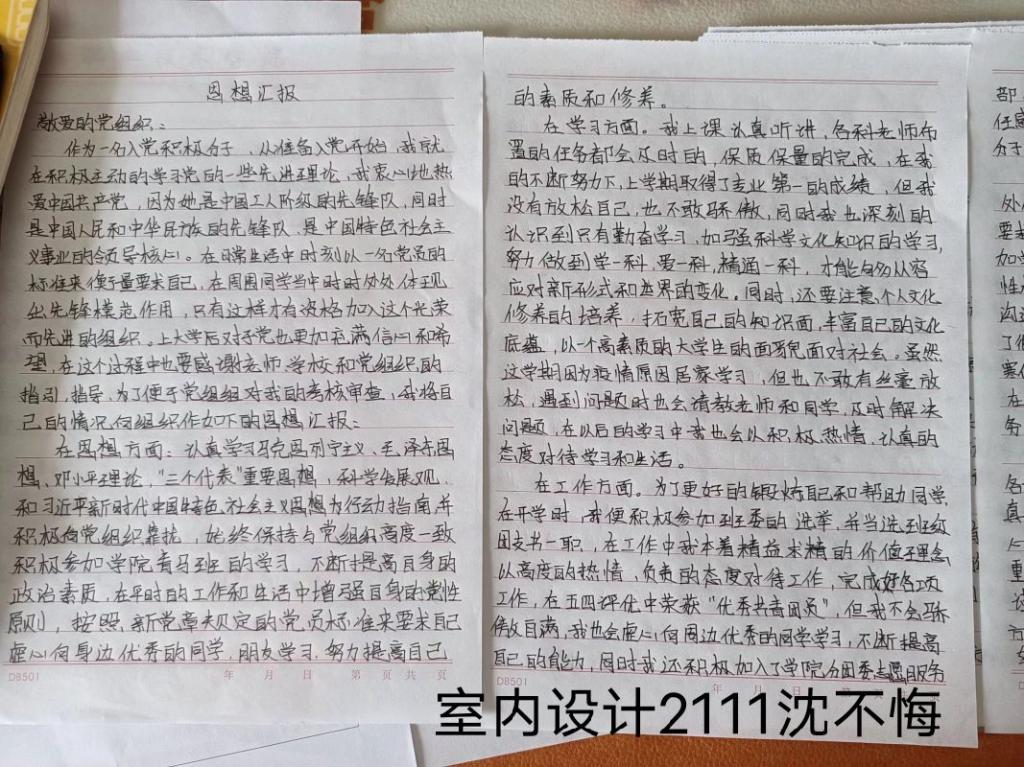 思想汇报
敬爱的党组织：
作为一名入党积极分子，从准备入党开始，我就
在积极主动的学习党的一些先进理论，我衷心地热
爱中国共产党，因为她是中国工人阶级的先锋队，同时
是中国人民和中华民族的先锋队，是中国特色社会主
义事业的领导核心。在日常生活中时刻以一名党员的
标准来衡量要求自己，在周围同学当中时时处处体现
出先锋模范作用，只有这样才有资格加入这个光荣
而先进的组织。上大学后对于党也更加充满信心和希
望，在这个过程中也要感谢老师、学校和党组织的
指引、指导，为了便于党组织对我的考核审查，我将自
己的情况向组织作如下的思想汇报：
在思想方面：认真学习马克思列宁主义、毛泽东思
想、邓小平理论，“三个代表”重要思想，科学发展观
和习近平新时代中国特色社会主义思想为行动指南，并
积极向党组织靠拢，始终保持与党组织高度一致
积极参加学院青马班的学习，不断提高自身的
政治素质，在平时的工作和生活中增强自身的党性
原则，按照新党章规定的党员标准来要求自己
虚心向身边优秀的同学，朋友学习，努力提高自己
DB501
年 月 日 第 页 共 页
的素质和修养。
在学习方面。我上课认真听讲，各科老师布
置的任务都会及时的，保质保量的完成，在我
的不断努力下，上学期取得了专业第一的成绩，但我
没有放松自己，也不敢骄傲，同时我也深刻的
认识到只有勤奋学习，加强科学文化知识的学习，
努力做到学一科，爱一科，精通一科，才能够从容
应对新形式和世界的变化。同时，还要注意个人文化
修养的培养，拓宽自己的知识面，丰富自己的文化
底蕴，以一个高素质的大学生的面貌面对社会。虽然
这学期因为疫情原因居家学习，但也不敢有丝毫放
松，遇到问题时也会请教老师和同学，及时解决
问题，在以后的学习中我也会以积极、热情、认真的
态度对待学习和生活。
在工作方面。为了更好的锻炼自己和帮助同学
在开学时，我便积极参加班委的选举，并当选班级
团支书一职，在工作中我本着精益求精的价值理念
以高度的热情，负责的态度对待工作，完成好各项
工作，在五四评优中荣获“优秀共青团员”，但我不会骄
傲自满，我也会虚心向周边优秀的同学学习，不断提高
自己的能力，同时我还积极加入了学院分团委志愿服务
DB501
室内设计2111沈不悔